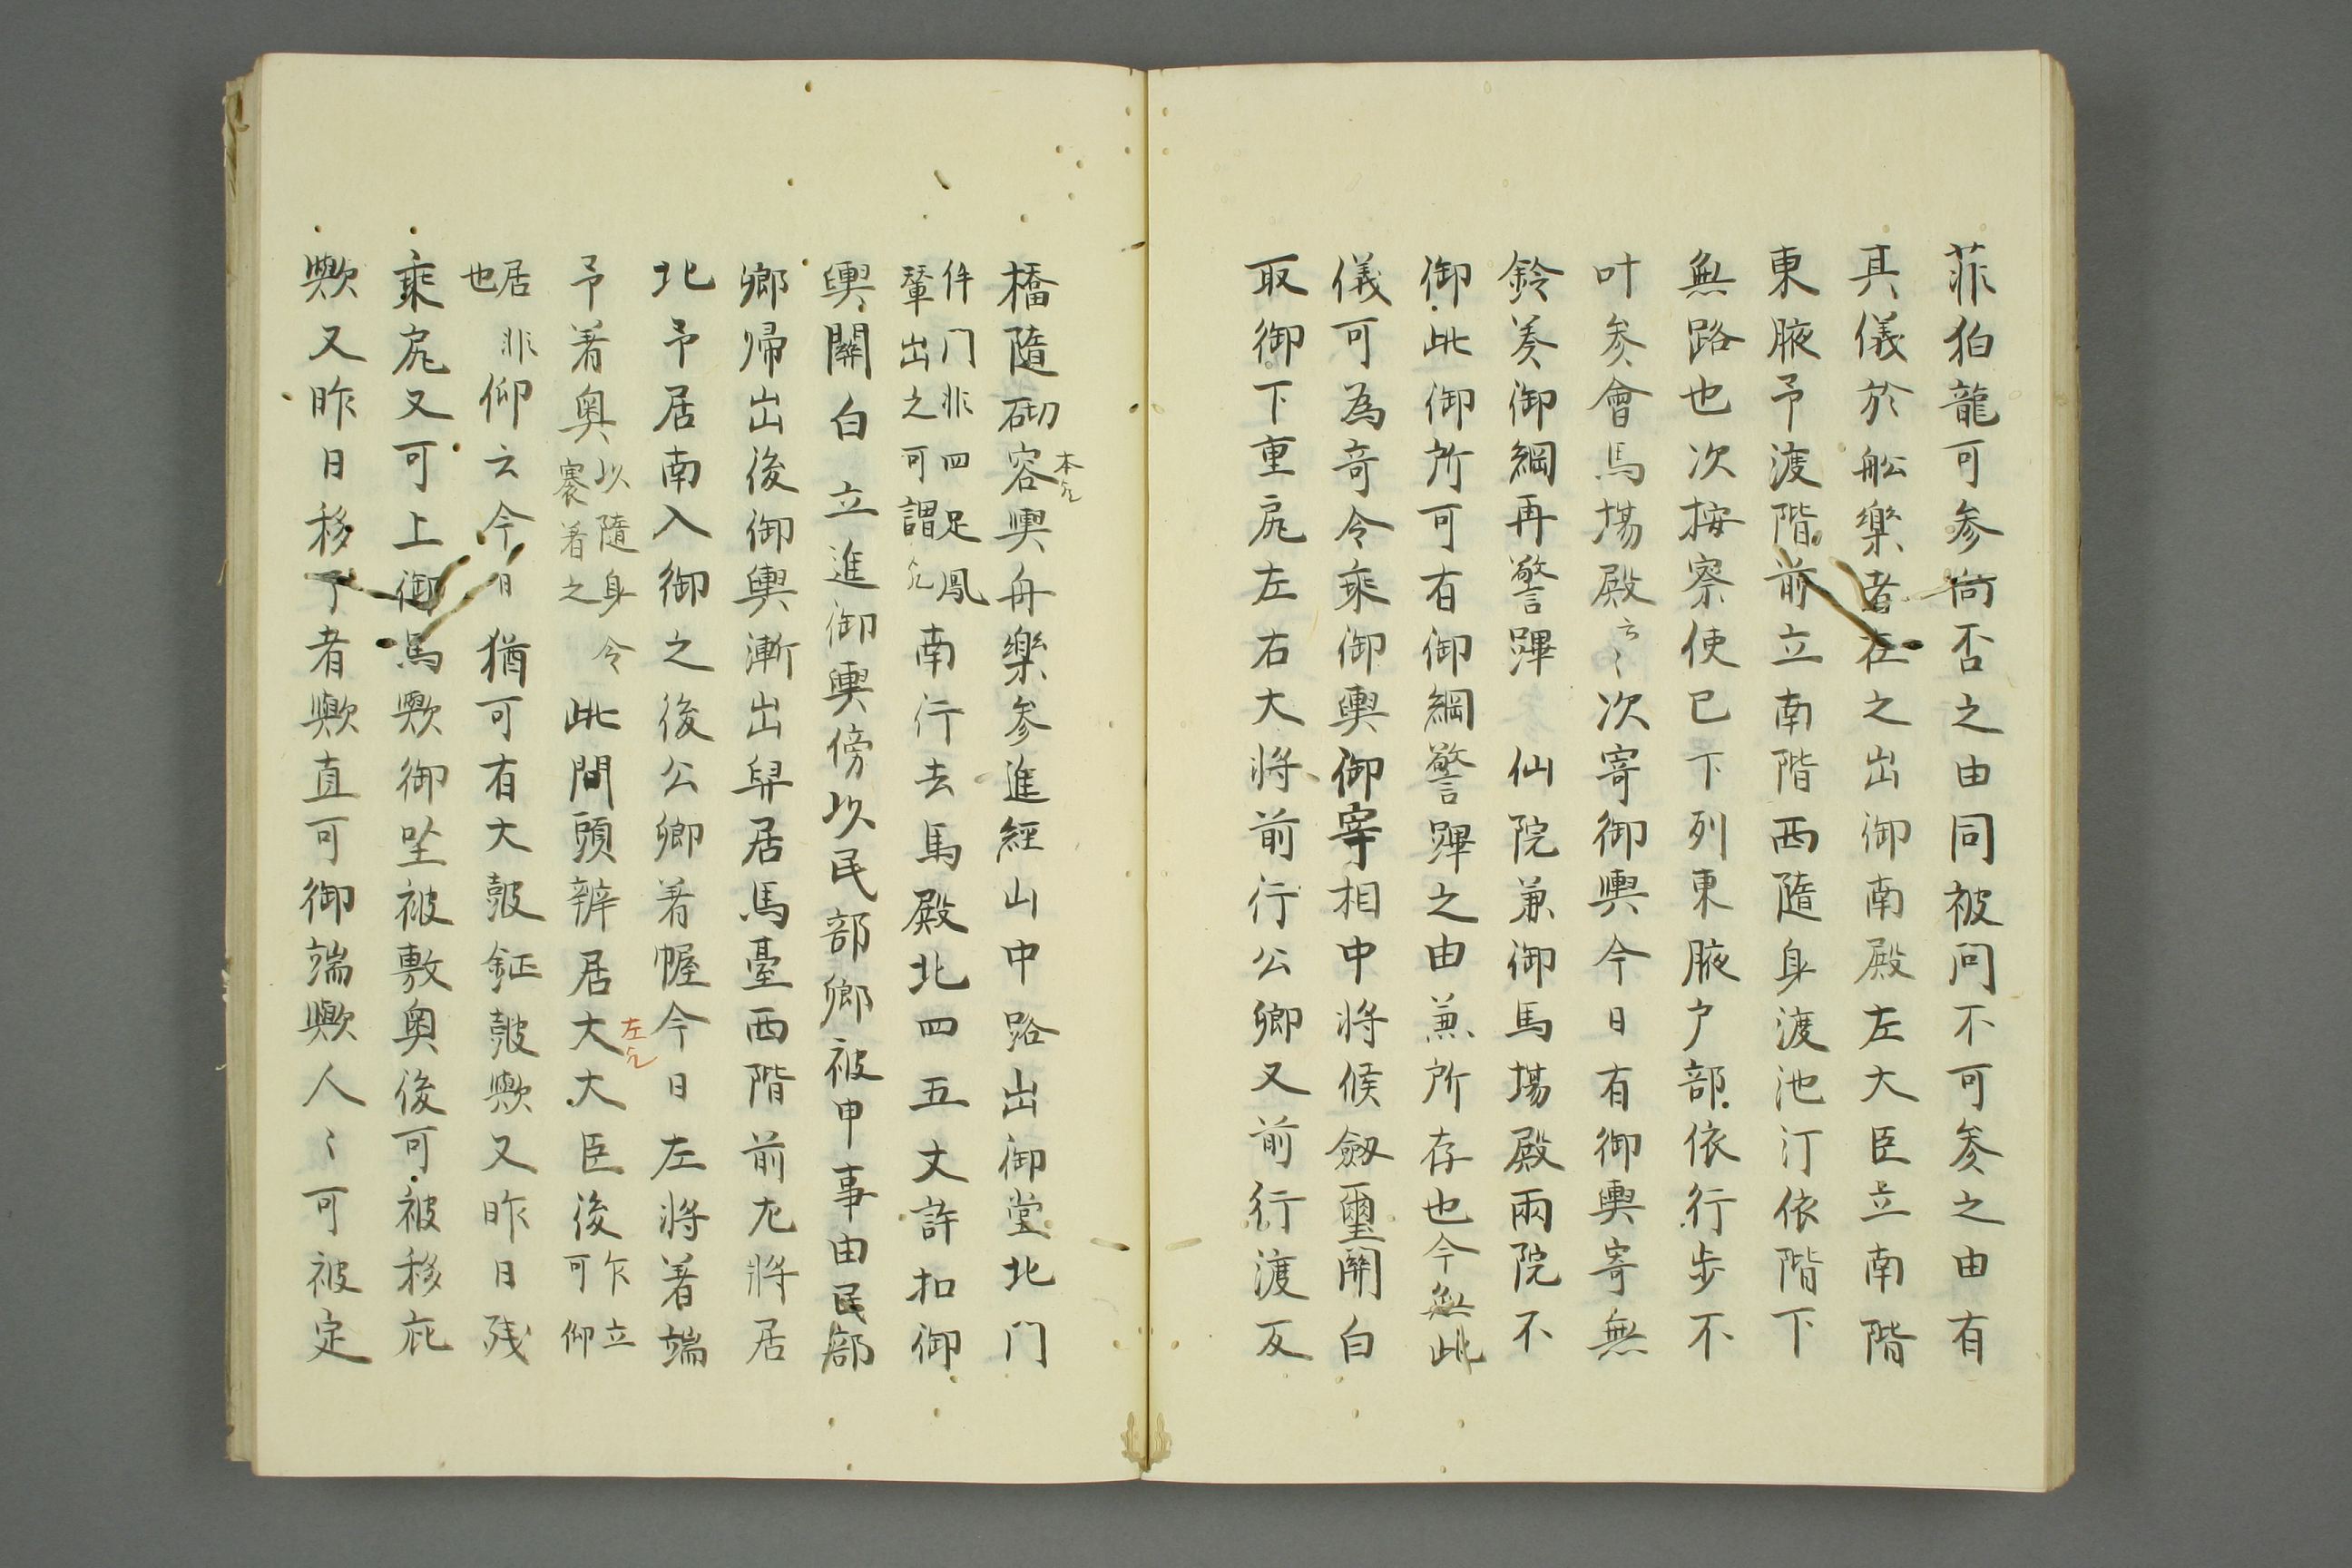 菲狛龍可参向否之由同被问不可参之由有
其儀於舩樂者在之出御南殿左大臣立南階
東腋予渡階前立南階西隨身渡池汀依階下
無路也次按察使已下列東腋户部依行步不
叶参會馬場殿云〻次寄御輿今日有御輿寄無
鈴奏御綱再警蹕　仙院兼御馬場殿兩院不
御此御所可有御綱警蹕之由兼所存也今無此
儀可為奇令乘御輿御宰相中将候劔璽關白
取御下重尻左右大将前行公卿又前行渡反
橋隨砌容輿舟樂参進經山中路出御堂北门
本乍
件门非四足鳳
輦出之可謂乍
南行去馬殿北四五丈許扣御
輿關白　立進御輿傍以民部鄉被申事由民部
鄉帰出後御輿漸出舁居馬臺西階前尤將居
北予居南入御之後公卿着幄今日左將着端
予着奥
以隨身令
褰着之
此間頭辨居大大臣後
左乍
乍立
可仰
居
也
非仰云今日猶可有大皷鉦皷歟又昨日殘
乘尻又可上御馬歟御坐被敷奥後可被移庇
歟又昨日移了者歟直可御端歟人〻可被定